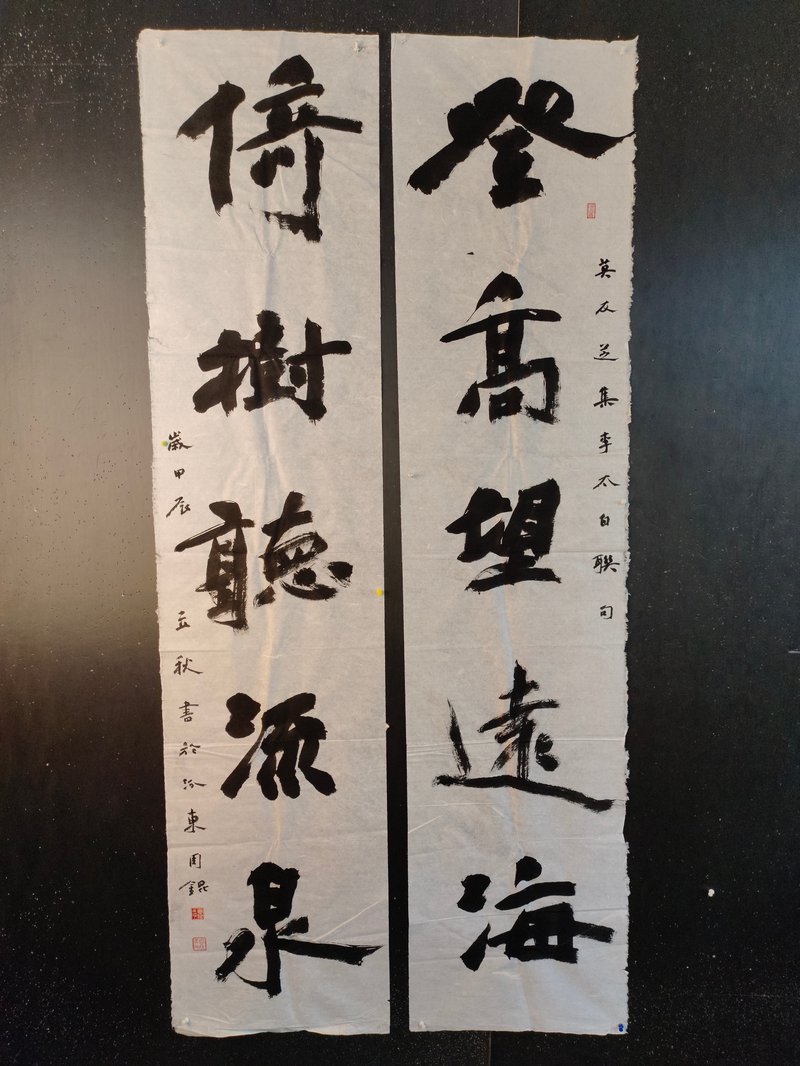 登高望遠海
莫友芝集李太白聯句
倚樹聽流泉
歲甲辰立秋書於汾東周錕